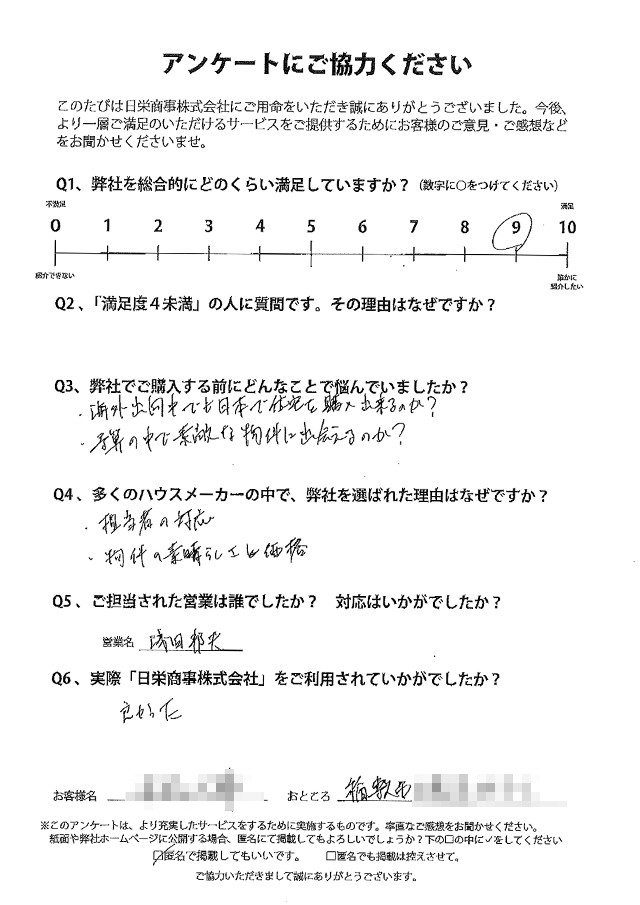 アンケートにご協力ください
このたびは日栄商事株式会社にご用命をいただき誠にありがとうございました。今後、
より一層ご満足のいただけるサービスをご提供するためにお客様のご意見・ご感想など
をお聞かせくださいませ。
Q1、弊社を総合的にどのくらい満足していますか？（数字に○をつけてください）
不満足 満足
0 1 2 3 4 5 6 7 8 9 10
紹介できない 誰かに
紹介したい
Q2、「満足度４未満」の人に質問です。その理由はなぜですか？
Q3、弊社でご購入する前にどんなことで悩んでいましたか？
・海外出向中でも日本で住宅を購入出来るのか？
・予算の中で素敵な物件に出会えるのか？
Q4、多くのハウスメーカーの中で、弊社を選ばれた理由はなぜですか？
・担当者の対応
・物件の素晴らしさと価格
Q5、ご担当された営業は誰でしたか？　対応はいかがでしたか？
営業名
Q6、実際「日栄商事株式会社」をご利用されていかがでしたか？
良かった
お客様名 おところ
※このアンケートは、より充実したサービスをするために実施するものです。率直なご感想をお聞かせください。
紙面や弊社ホームページに公開する場合、匿名にて掲載してもよろしいでしょうか？下の□の中に✓をしてください
☑匿名で掲載してもいいです。 □匿名でも掲載は控えさせて。
ご協力いただきまして誠にありがとうございます。